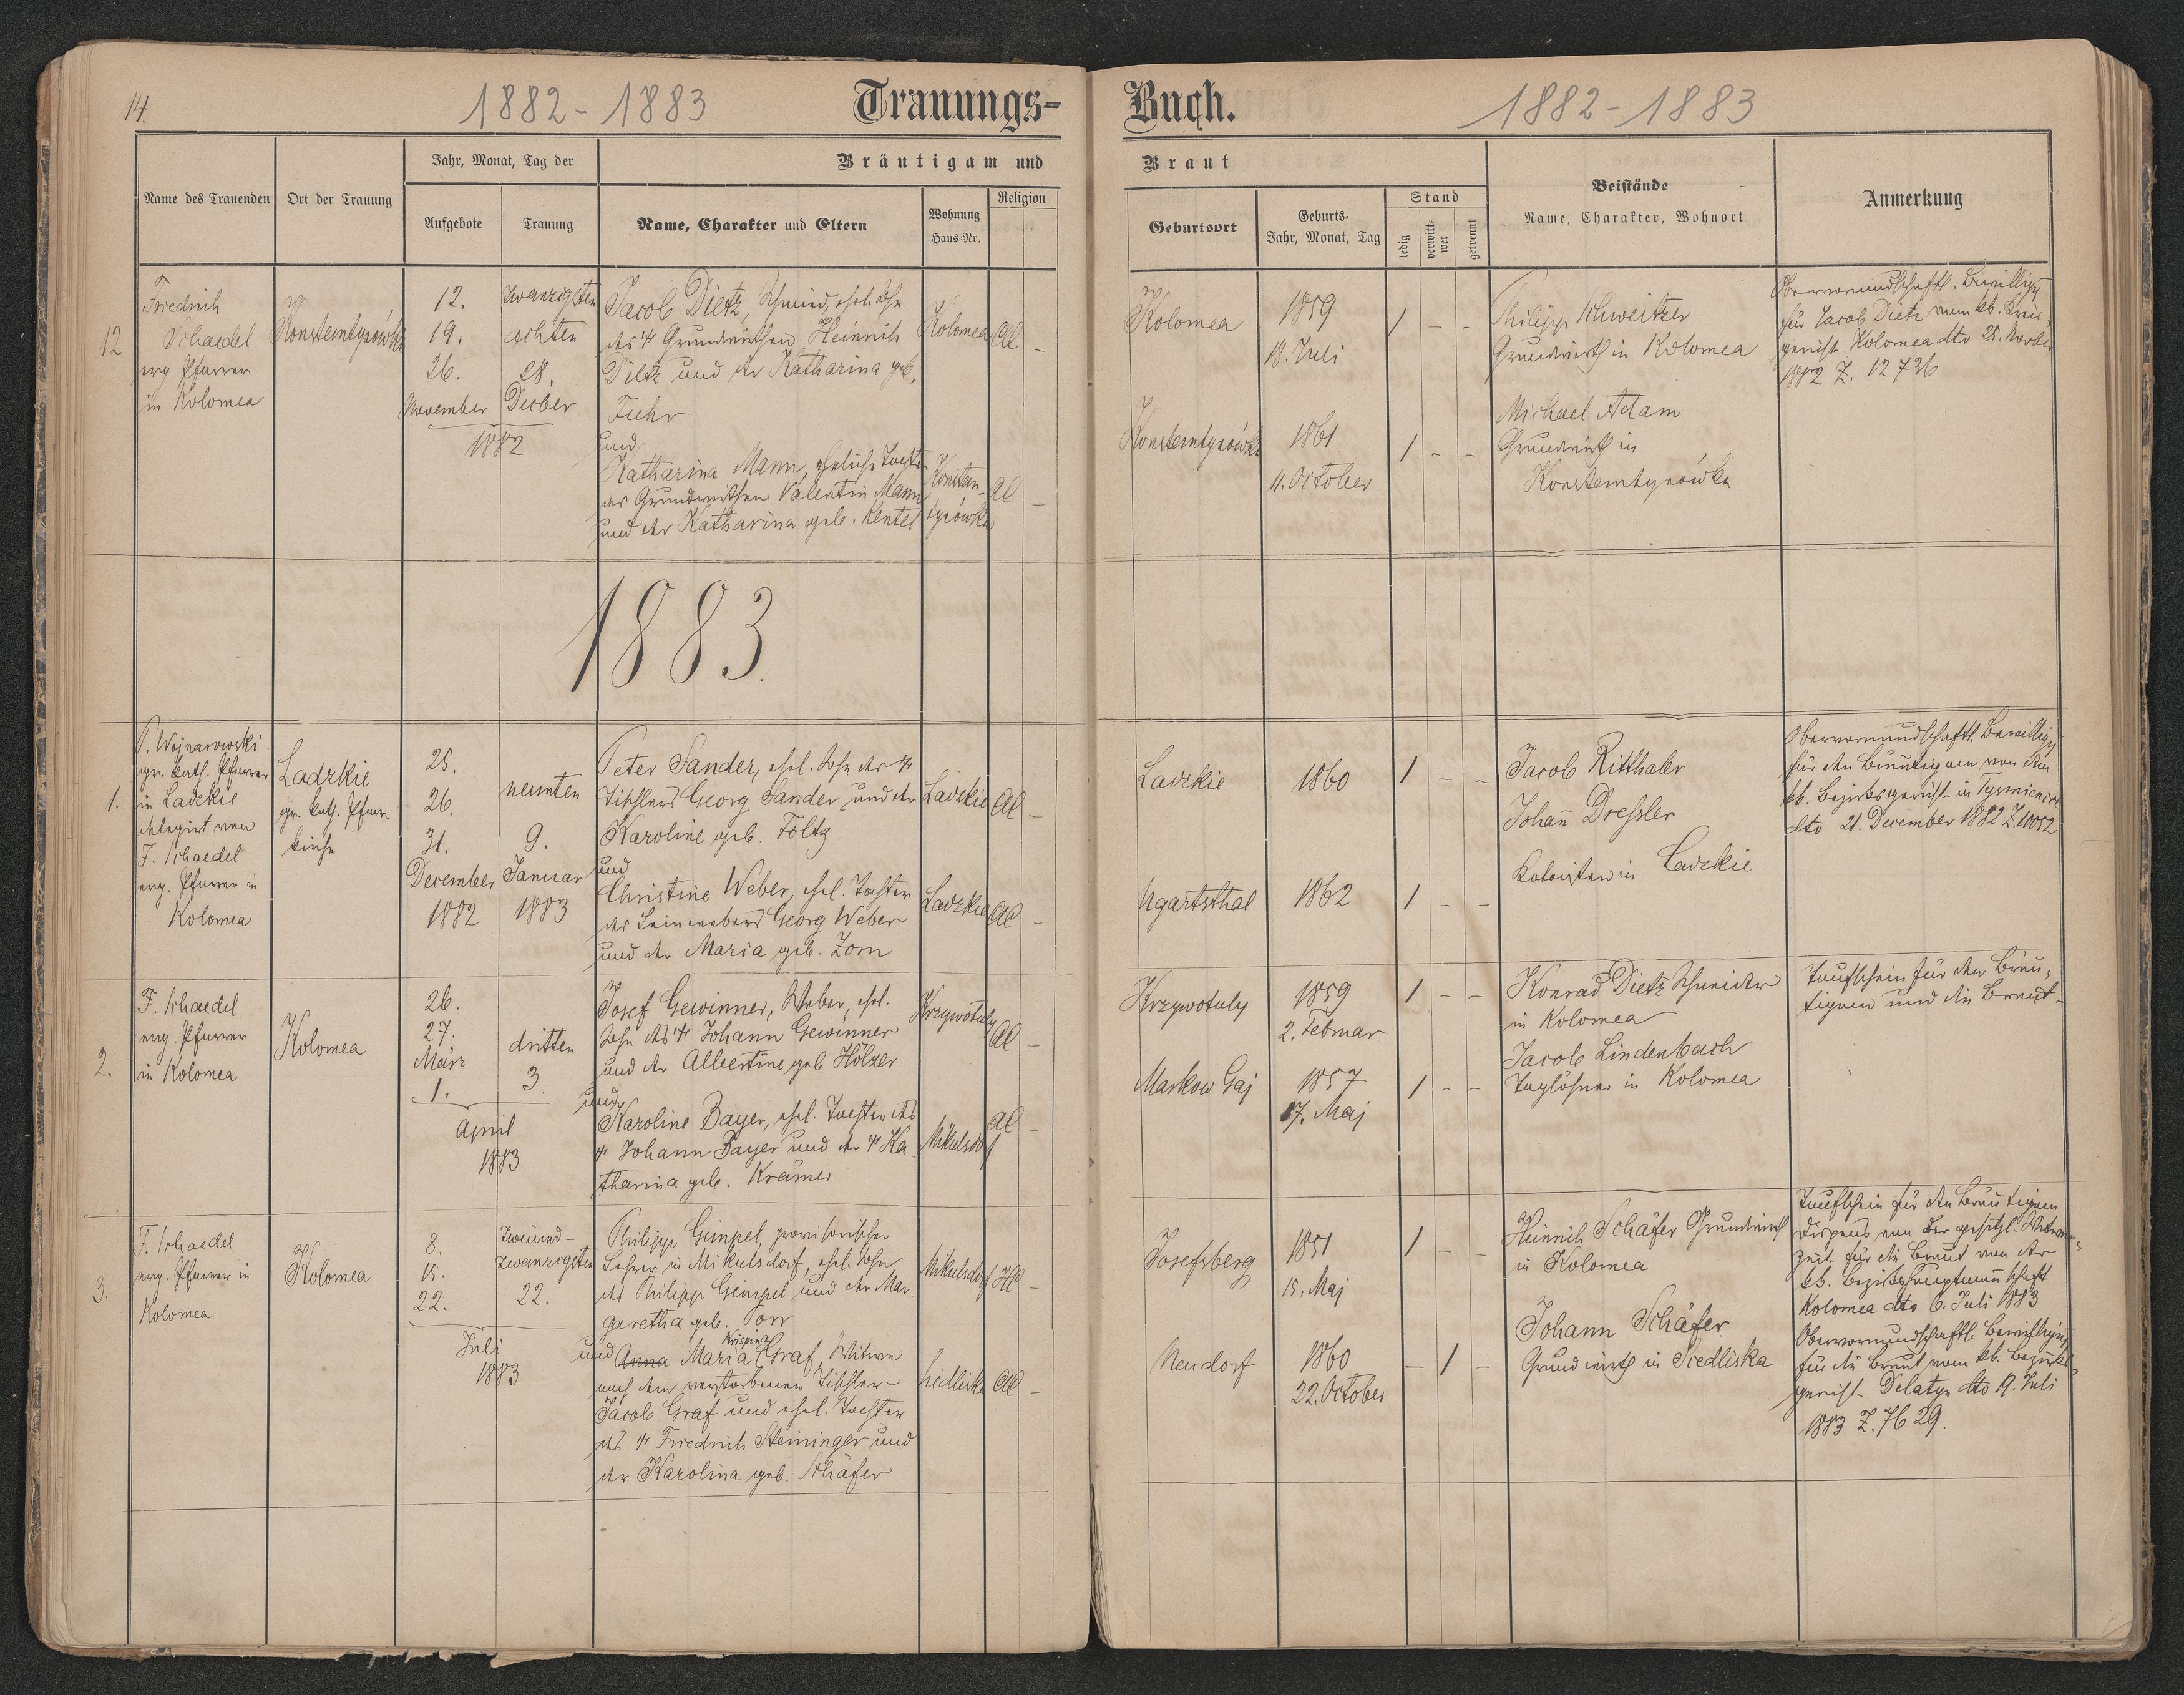 14.
1882-1883
Trauungs-
Buch.
1882-1883
Name des Trauenden
Ort der Trauung
Jahr, Monat, Tag der
Aufgebote
Trauung
Bräutigam und
Name, Charakter und Eltern
Wohnung
Haus-Nr.
Religion
Braut
Geburtsort
Geburts-
Jahr, Monat, Tag
Stand
ledig
verwitt-
wet
getrennt
Beistände
Name, Charakter, Wohnort
Anmerkung
12
Friedrich
Schaedel
evg. Pfarrer
in Kolomea
Konstemtynówka
12.
19.
26.
November
zwanzigsten
achten
28.
Decber
1882
Jacob Dietz, Schmied, ehel. Sohn
des † Grundwirthen Heinrich
Dietz und der Katharina geb.
Fuhr
und
Katharina Mann, eheliche Tochter
des Grundwirthen Valentin Mann
und der Katharina geb. Kentel
Kolomea
AC
Konstan-
tynówka
AC
Kolomea
1859
18. Juli
Konstemtynówka
1861
11. October
Philipp Schweitzer
Grundwirth in Kolomea
Michael Adam
Grundwirth in
Konstemtynówka
Obervormundschaftl. Bewilligg
für Jacob Dietz vom kk. Kreis-
gericht Kolomea dto 25. Novber
1882 Z. 12736
1883.
1.
P. Wojnarowski
gr. kath. Pfarrer
in Ladzkie
delegirt von
F. Schaedel
evg. Pfarrer in
Kolomea
Ladzkie
gr. kath. Pfarr-
kirche
25.
26.
31.
December
1882
neunten
9.
Januar
1883
Peter Sander, ehel. Sohn des †
Tischlers Georg Sander und der
Karoline geb. Foltz
und
Christine Weber, ehel. Tochter
des Leinwebers Georg Weber
und der Maria geb. Zorn
Ladzkie
AC
Ladzkie
AC
Ladzkie
1860
Ugartsthal
1862
Jacob Ritthaler
Johan̄ Dressler
Kolonisten in Ladzkie
Obervormundschaftl. Bewilligg
für den Bräutigam von dem
kk. Bezirksgericht in Tysmienica
dto 21. December 1882 Z. 10052
2.
F. Schaedel
evg. Pfarrer
in Kolomea
Kolomea
26.
27.
März
1.
dritten
3.
April
1883
Josef Gewinner, Weber, ehel.
Sohn des † Johann Gewinner
und der Albertine geb. Hölzer
und
Karoline Bayer, ehel. Tochter des
† Johann Bayer und der † Ka
tharina geb. Krämer
Krzywotuly
AC
Mikulsdorf
AC
Krzywotuly
1859
2. Februar
Markow Gaj
1857
17. Maj
Konrad Dietz Schneider
in Kolomea
Jacob Lindenbach
Taglöhner in Kolomea
Taufschein für den Bräu-
tigam und die Braut
3.
F. Schaedel
evg. Pfarrer in
Kolomea
Kolomea
8.
15.
22.
zweiund-
zwanzigsten
22.
Juli
1883
Philipp Gimpel, provisorischer
Lehrer in Mikulsdorf, ehel. Sohn
des Philipp Gimpel und der Mar
garetha geb. Porr
Krispina
und Anna Maria Graf, Witwe
nach dem verstorbenen Tischler
Jacob Graf und ehel. Tochter
des † Friedrich Steininger und
der Karolina geb. Schäfer
Mikulsdorf
HC
Siedliska
AC
Josefsberg
1851
15. Maj
Neudorf
1860
22. October
Heinrich Schäfer Grundwirth
in Kolomea
Johann Schäfer
Grundwirth in Siedliska
Taufschein für den Bräutigam
Dispens von der gesetzl. Witwen-
zeit für die Braut von der
kk. Bezirkshauptman̄schaft
Kolomea dto 6. Juli 1883
Obervormundschaftl. Bewilligung
für die Braut vom kk. Bezirks-
gericht Delatyn dto 19. Juli
1883 Z. 7629.